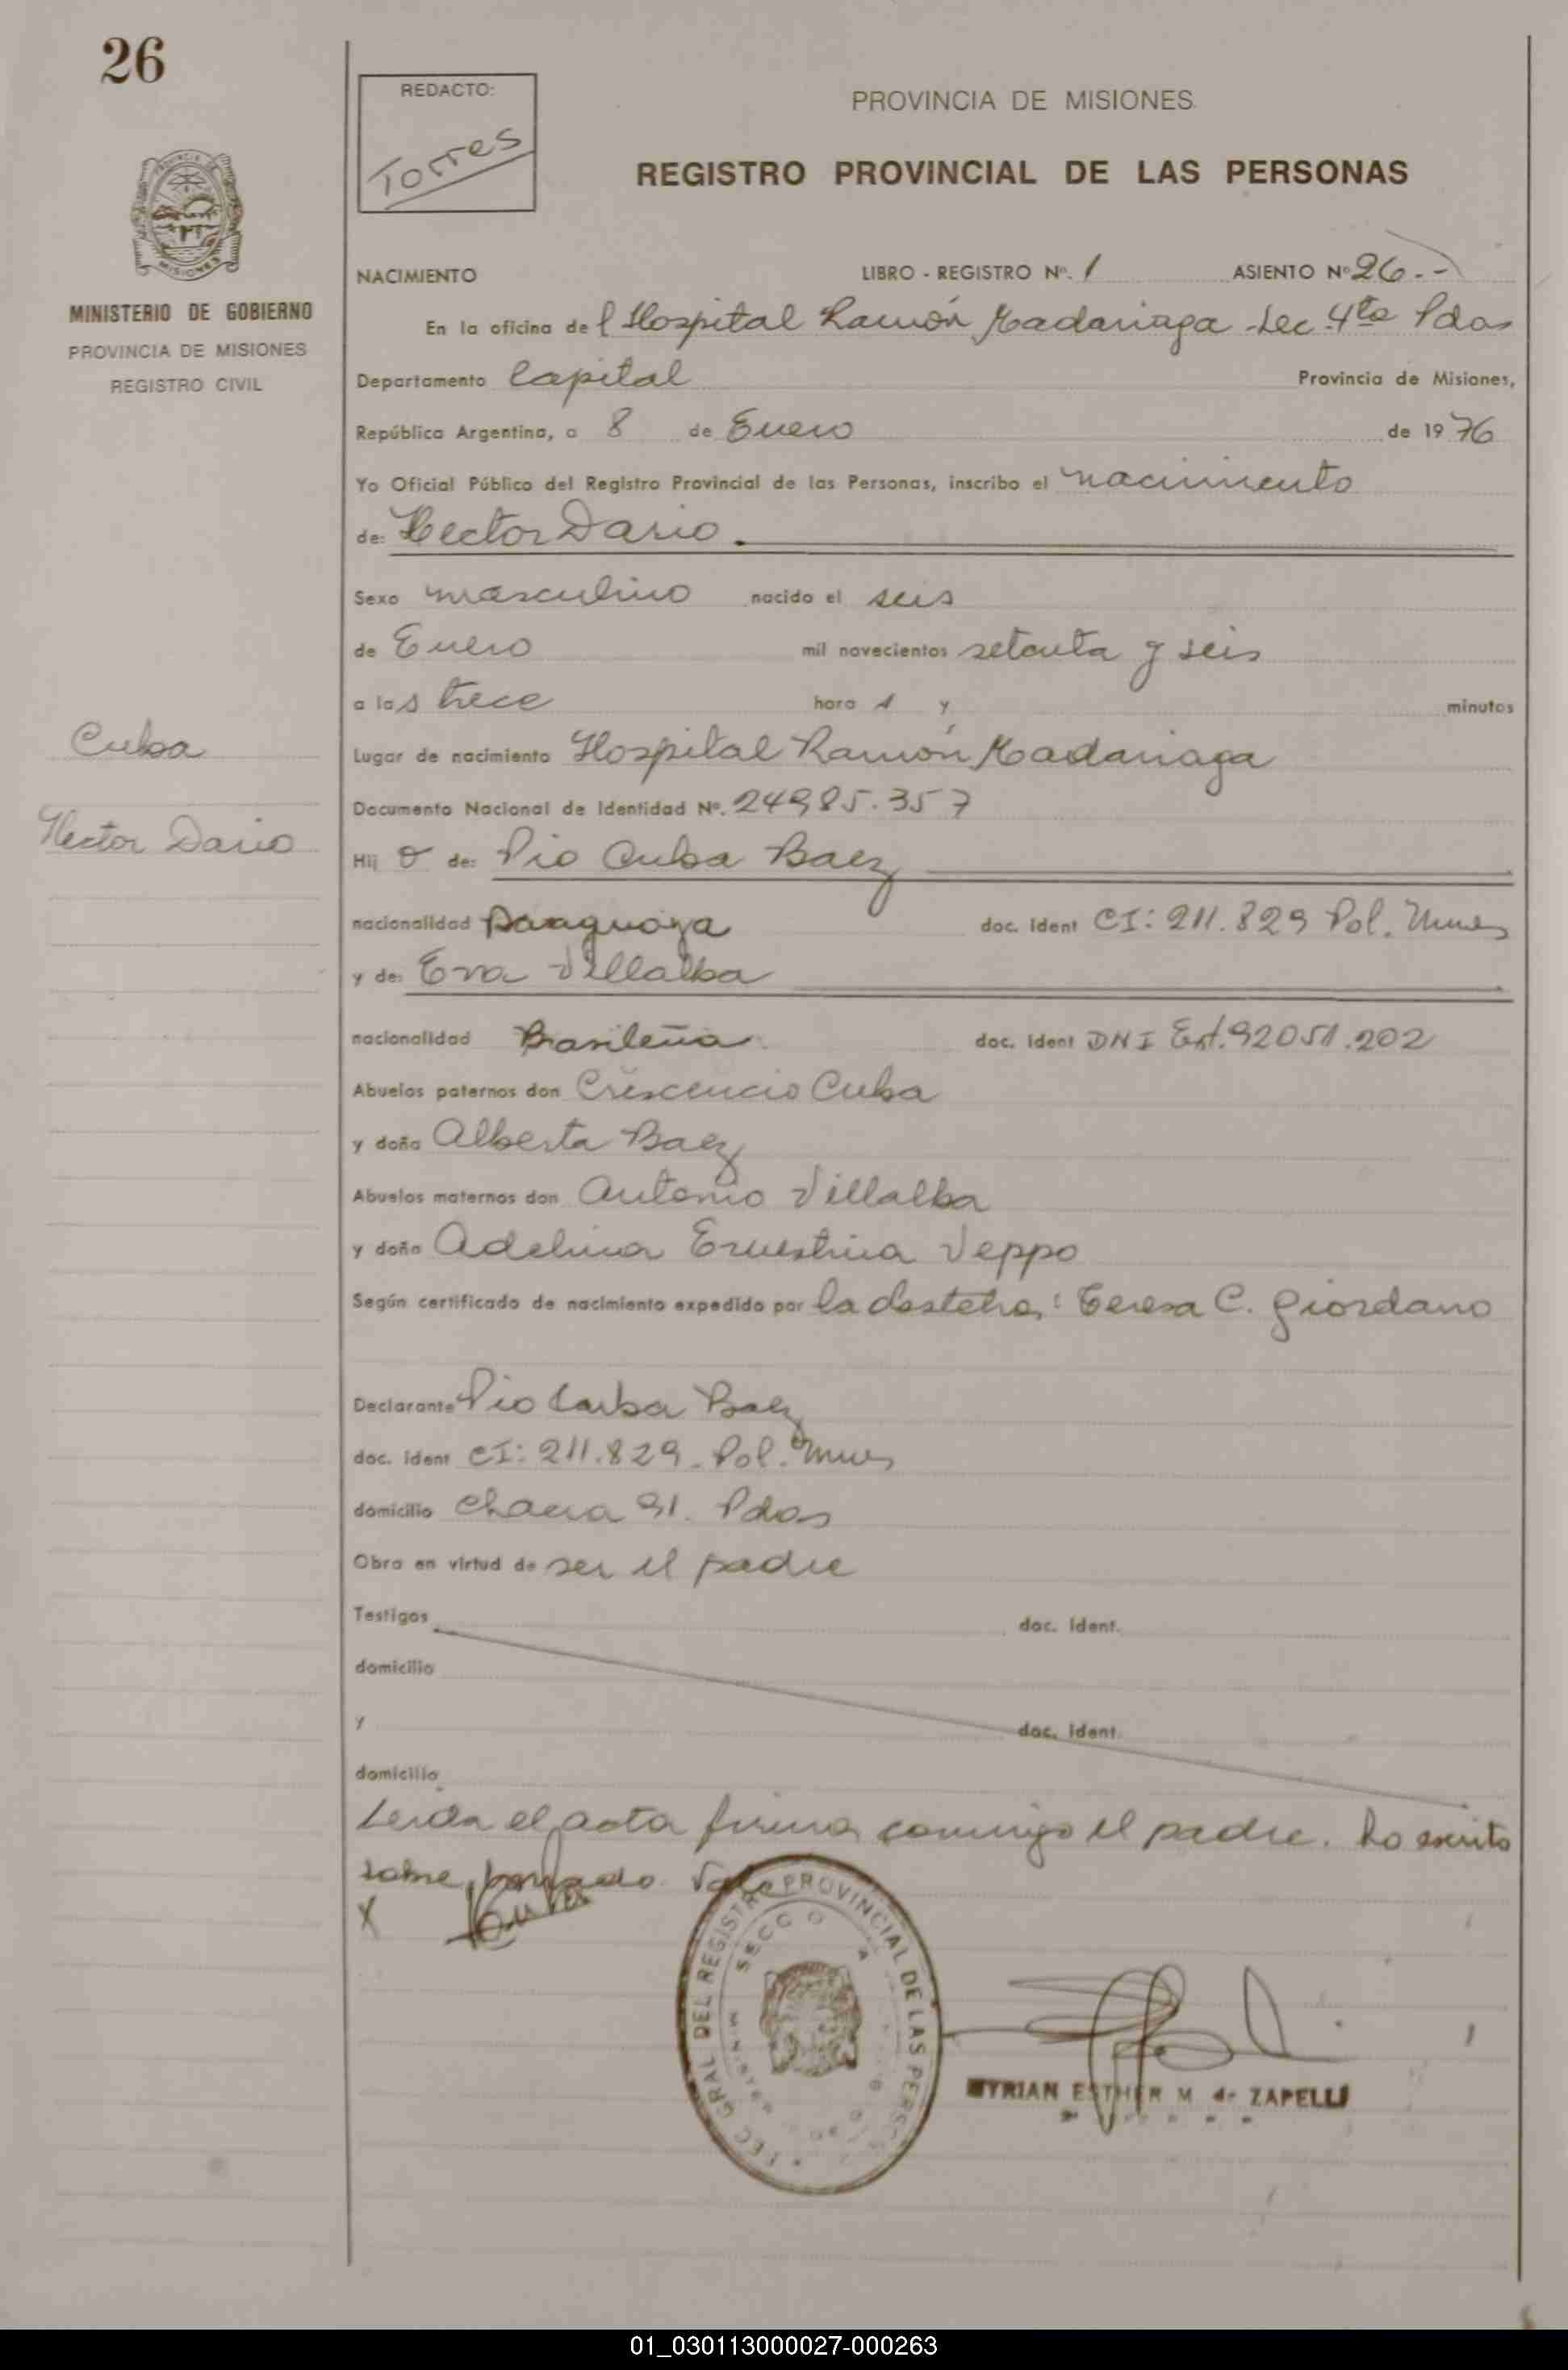 26
REDACTO:
Torres
PROVINCIA DE MISIONES
REGISTRO PROVINCIAL DE LAS PERSONAS
MISIONES
MINISTERIO DE GOBIERNO
PROVINCIA DE MISIONES
REGISTRO CIVIL
NACIMIENTO LIBRO - REGISTRO Nº. 1 ASIENTO Nº 26.-
En la oficina del Hospital Ramón Madariaga Sec. 4ta Pdas
Departamento Capital Provincia de Misiones,
República Argentina, a 8 de Enero de 1976
Yo Oficial Público del Registro Provincial de las Personas, inscribo el nacimiento
de: Hector Dario.
Sexo masculino nacido el seis
de Enero mil novecientos setenta y seis
a las trece hora s y minutos
Cuba
Hector Dario
Lugar de nacimiento Hospital Ramón Madariaga
Documento Nacional de Identidad Nº. 24985.357
Hij o de: Pio Cuba Baez
nacionalidad Paraguaya doc. ident CI: 211.829 Pol. Mnes
y de: Eva Villalba
nacionalidad Brasileña doc. ident DNI Ext. 92051.202
Abuelos paternos don Crescencio Cuba
y doña Alberta Baez
Abuelos maternos don Antonio Villalba
y doña Adelina Ernestina Veppo
Según certificado de nacimiento expedido por la Obstetra: Teresa C. Giordano
Declarante Pio Cuba Baez
doc. ident CI: 211.829. Pol. Mnes
domicilio Chacra 91. Pdas
Obra en virtud de ser el padre
Testigos doc. ident.
domicilio
y doc. ident.
domicilio
Leida el acta firma conmigo el padre. Lo escrito
sobre borrado. Vale
X
GRAL DEL REGISTRO PROVINCIAL DE LAS PERS
SECC
MYRIAN ESTHER M de ZAPELLI
01_030113000027-000263